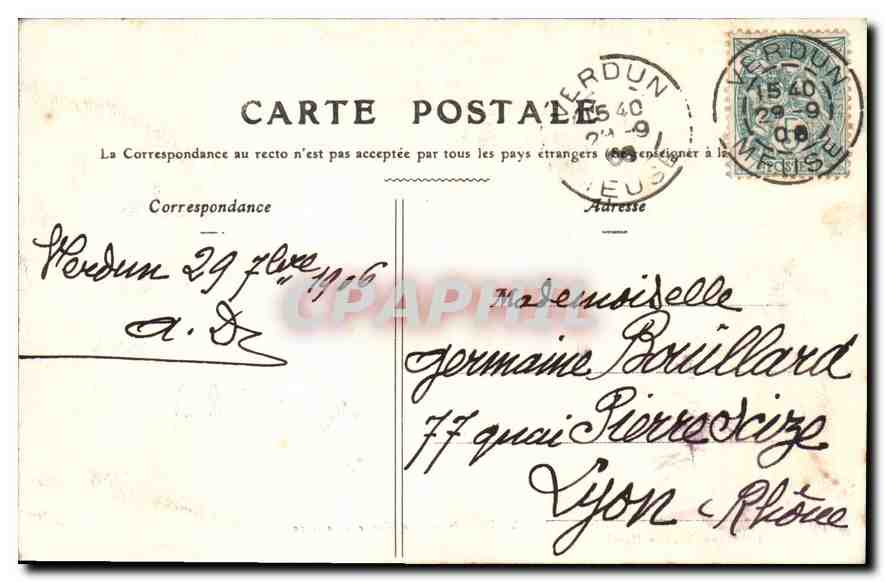 CARTE POSTALE
La Correspondance au recto n'est pas acceptée par tous les pays étrangers (Se renseigner à la
Correspondance
Adresse
VERDUN
15 40
29 -9
06
MEUSE
VERDUN
15 40
29 -9
06
MEUSE
Verdun 29 7bre 1906
a. D
CPAPHIL
Mademoiselle
germaine Bouillard
77 quai Pierre Scize
Lyon
Rhône